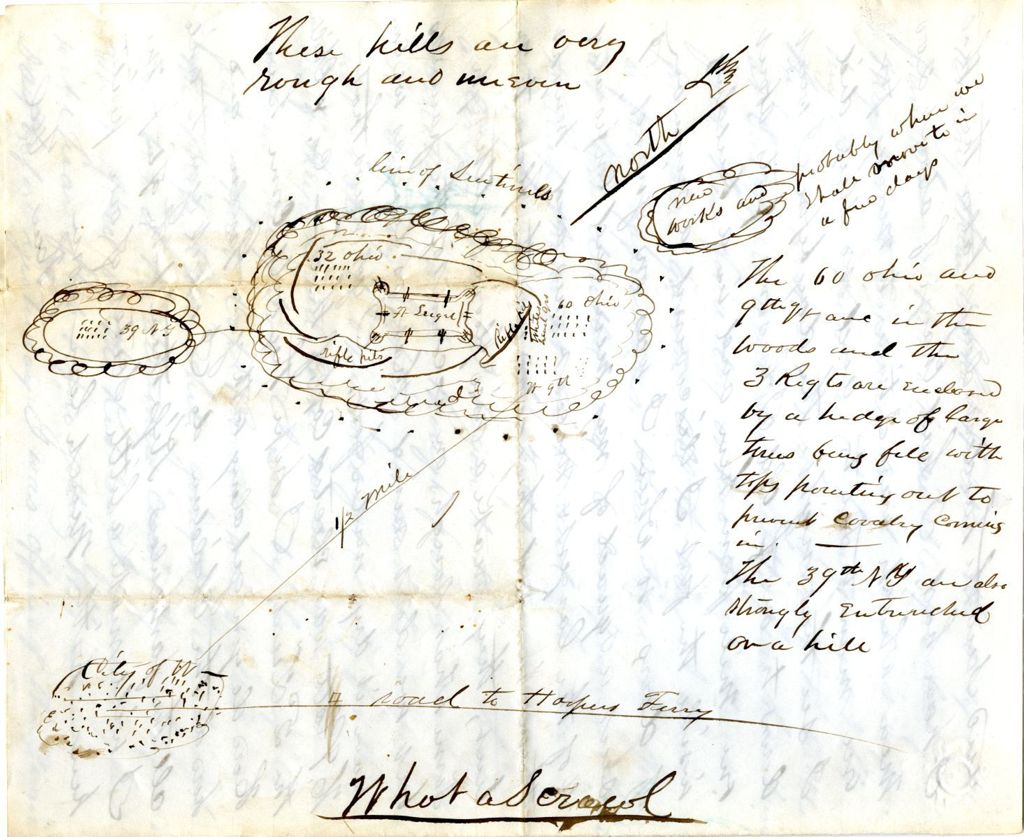 These hills are very
rough and uneven
North
line of Sentinels
new
works and
probably where we
shall move to in
a few days
32 ohio
Ft Seigel
60 Ohio
rifle pits
39 N Y
1/2 mile
The 60 ohio and
9th Vt are in the
woods and the
3 Regts are enclosed
by a hedge of large
trees being fell with
tops pointing out to
prevent Covalry Coming
in.
The 39th NY are also
strongly Entrenched
on a hill
City of W
road to Harpers Ferry
What a Scrawl